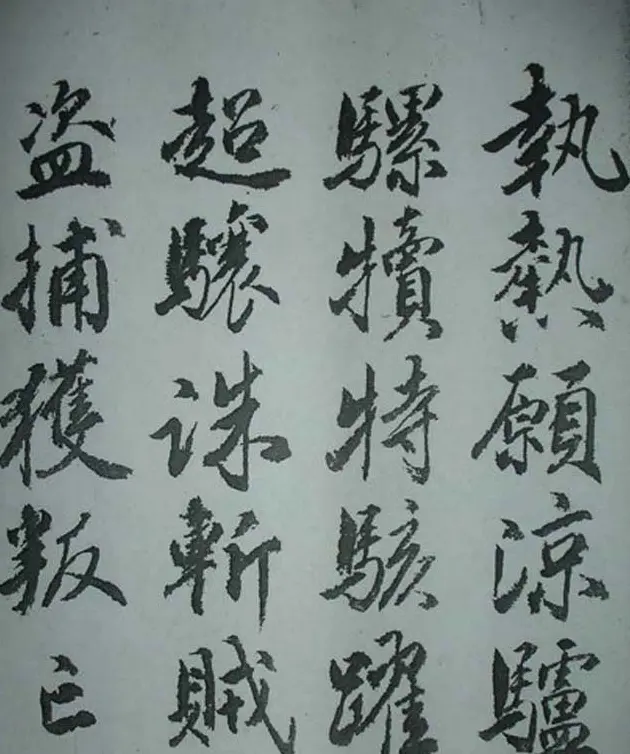 執熱願涼驢
騾犢特駭躍
超驤誅斬賊
盗捕獲叛亡